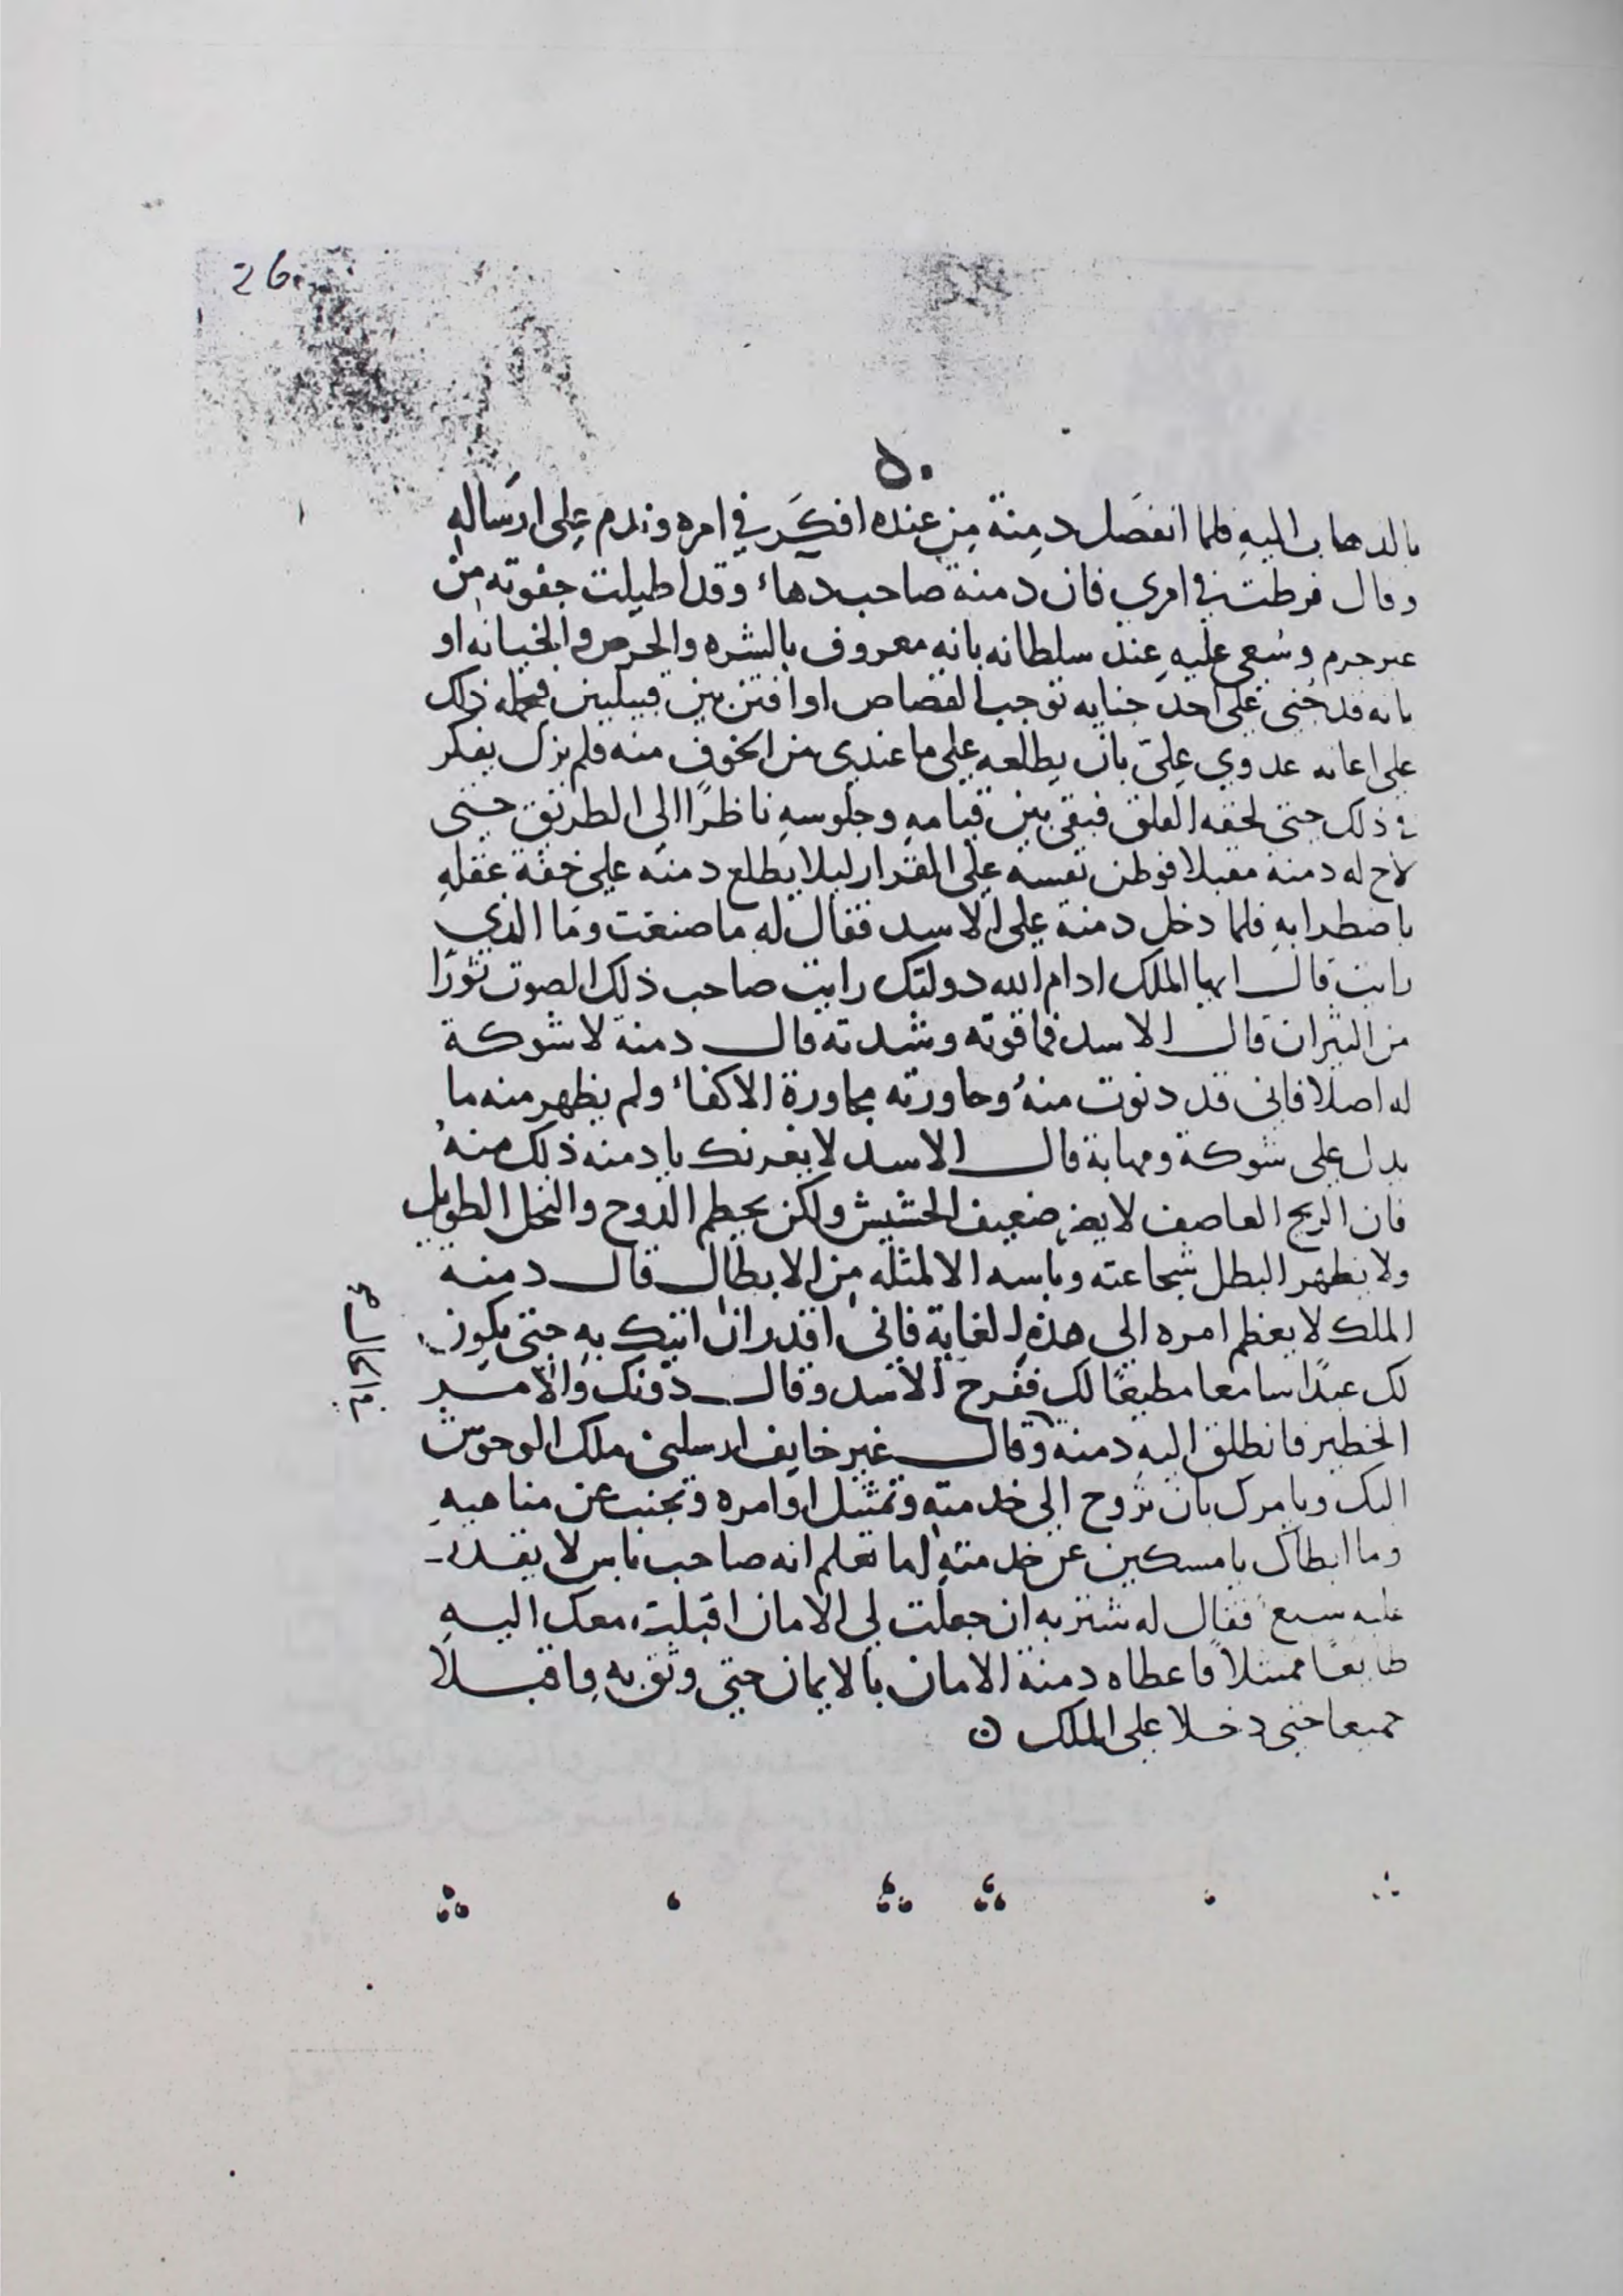 26
٥٠
بالدهاب اليهِ فلما انفصَل دمِنة مِن عِنده افكَر في امره وندم عِلى ارسَالهِ
وقال فرطت في امري فان دمنه صاحب دهاءٔ وقد اطيلت جفوته من
غير جرم وسُعي عليهِ عِند سلطانه بانه معروف بالشره والحرص والخيانه او
بانه قد جنى على احد جنايه توجب القصاص او افتن بين قبيلين فيحمله ذلك
على اعانه عدوي عِليّ بان يطلعه على ما عندي من الخوف منه فلم يزل يفكر
في ذلك حتى لحقه القلق فبقى بين قيامهِ وجلوسهِ ناظرًا الى الطريق حتى
لاح له دمنة مقبلا فوطن نفسه على القرار ليلا يطلع دمنه على خفة عقلهِ
باضطرابهِ فلما دخل دمنة على الاسد فقال له ما صنعت ومَا الذي
رايت قال ايها الملك ادام الله دولتك رايت صاحب ذلك الصوت ثورًا
من الثيران قال الاسد فما قوته وشدته قال دمنه لا شوكة
له اصلا فاني قد دنوت منهُ وحاورته محاورة الاكفاءٔ ولم يظهر منه ما
يدل على شوكة ومهابة قال الاسد لا يغرنك يا دمنه ذلك منهُ
فان الريح العاصف لا يضر ضعيف الحشيش ولكن يحطم الدوح والنخل الطويل
ولا يظهر البطل شجاعته وباسه الا لمثله مِن الابطال قال دمنه
الملك لا يعظم امره الى هذهِ الغاية فاني اقدر ان اتيك بهِ حتى يكون
لك عبدًا سامعا مطيعًا لك ففرح الاسد وقال دونك والامـر
الخطير فانطلق اليهِ دمنة وقال غير خايف ارسلني ملك الوحوش
اليك ويامرك بان تروح الى خدمتهِ وتمتثل اوامره وتجنب عن مناهيهِ
وما ابطاك يا مسكين عن خدمتهِ اما تعلم انه صاحب باس لا يقدر
عليه سبع فقال له شتربه ان جعلت لي الامان اقبلت معك اليهِ
طايعًا ممتثلاً فاعطاه دمنة الامان بالايمان حتى وثق بهِ واقبـلا
جميعا حتى دخلا على الملك ن